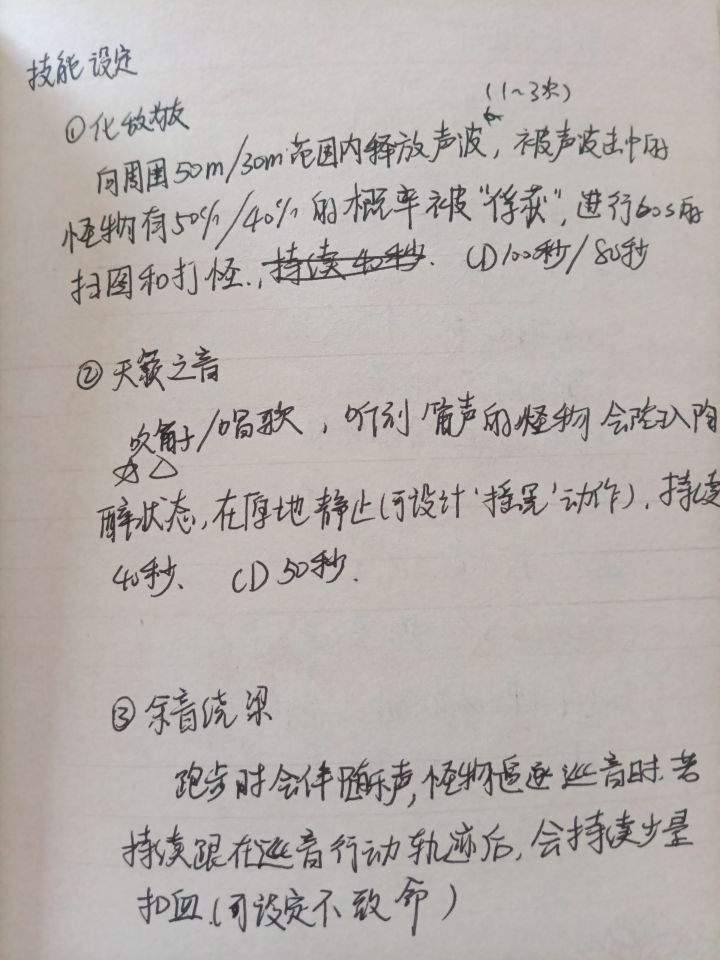 技能设定
①化敌为友
(1~3次)
向周围50m/30m范围内释放声波,被声波击中的
怪物有50%/40%的概率被“俘获”,进行60s的
扫图和打怪.,持续40秒. CD100秒/80秒
②天籁之音
吹笛子/唱歌,听到笛声的怪物会陷入陶
醉状态,在原地静止(可设计‘摇晃’动作),持续
40秒、 CD50秒.
③余音绕梁
跑步时会伴随乐声,怪物追逐巡音时.若
持续跟在巡音行动轨迹后,会持续少量
扣血.(可设定不致命)